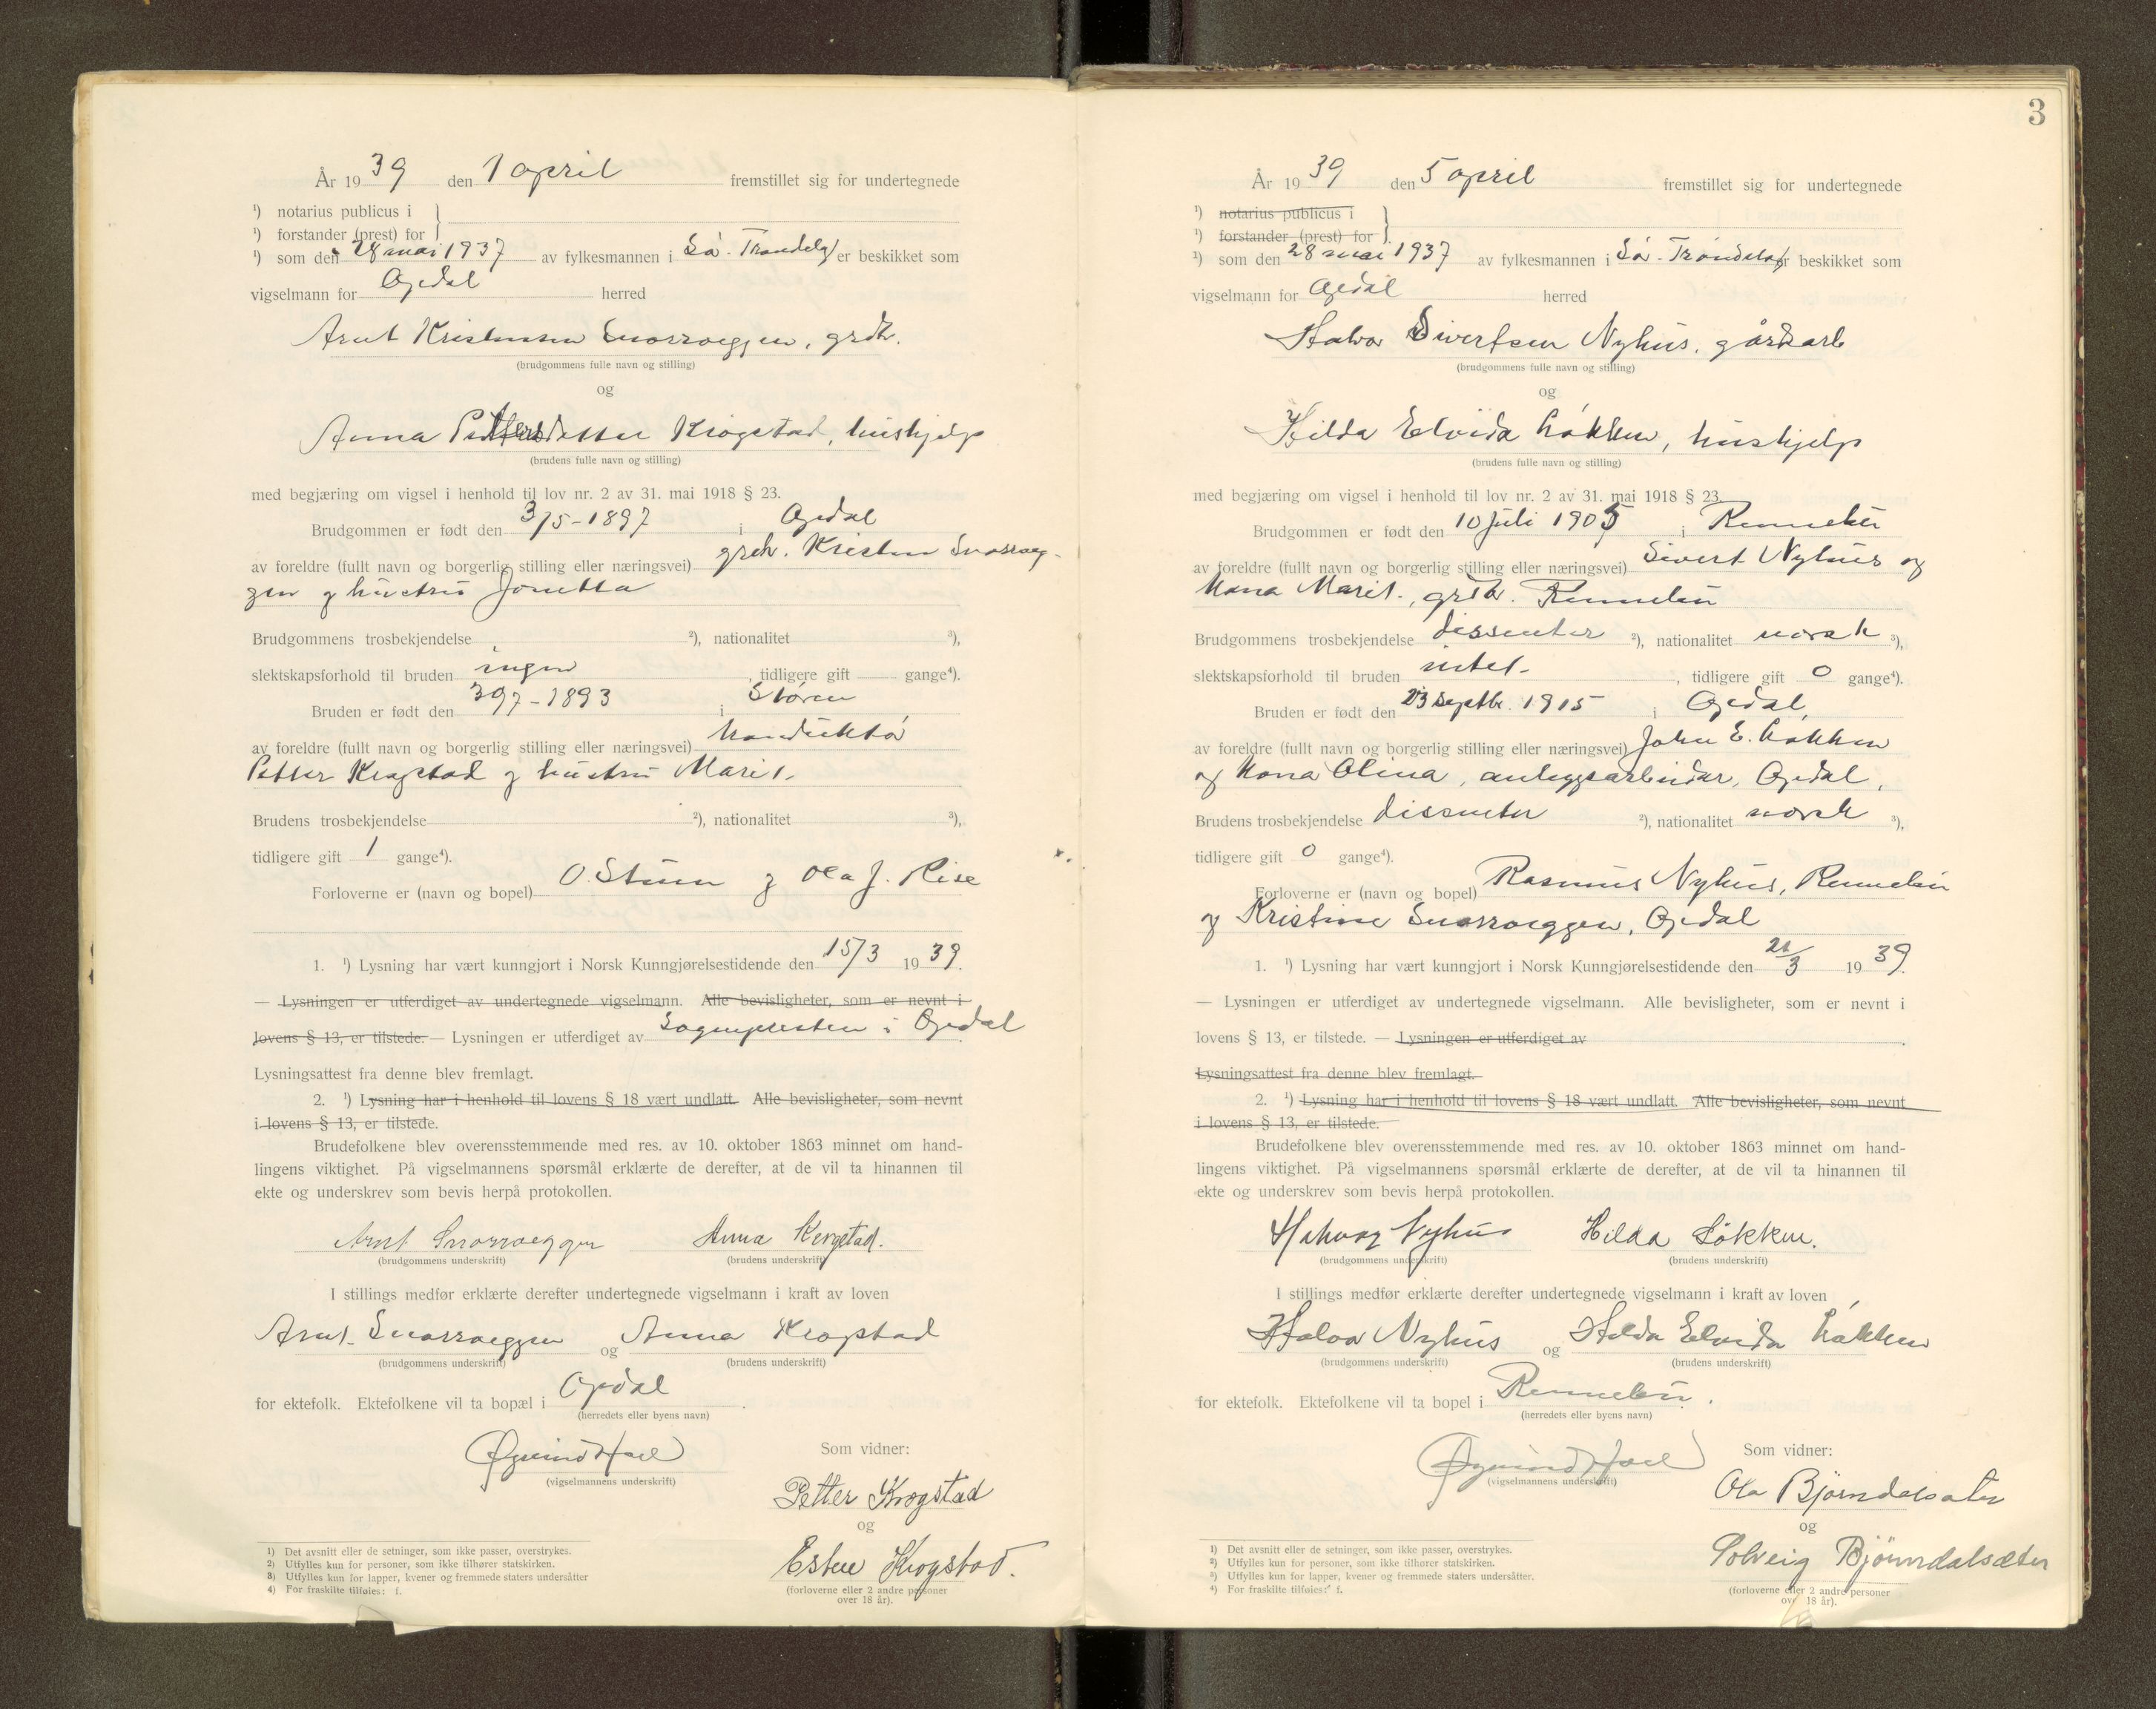 År 1939 den 1 april fremstillet sig for undertegnede
¹) notarius publicus i }
¹) forstander (prest) for
¹) som den 28 mai 1937 av fylkesmannen i Sø. Trøndelag er beskikket som
vigselmann for Opdal herred
Arnt Kristensen Snorroeggen, grdbr.
(brudgommens fulle navn og stilling)
og
Anna Pettersdatter Krogstad, hushjelp
(brudens fulle navn og stilling)
med begjæring om vigsel i henhold til lov nr. 2 av 31. mai 1918 § 23.
Brudgommen er født den 3/5-1897 i Opdal
av foreldre (fullt navn og borgerlig stilling eller næringsvei) grdbr. Kristen Snorroeg-
gen og hustru Jonetta
Brudgommens trosbekjendelse ²), nationalitet ³),
slektskapsforhold til bruden ingen, tidligere gift gange⁴).
Bruden er født den 1893 i Støren
av foreldre (fullt navn og borgerlig stilling eller næringsvei) konduktør
Petter Krogstad og hustru Marit.
Brudens trosbekjendelse ²), nationalitet ³),
tidligere gift 1 gange⁴).
Forloverne er (navn og bopel) O. Stuen og Ola J. Rise
1. ¹) Lysning har vært kunngjort i Norsk Kunngjørelsestidende den 15/3 1939.
— Lysningen er utferdiget av undertegnede vigselmann. Alle bevisligheter, som er nevnt i
lovens § 13, er tilstede. — Lysningen er utferdiget av Sognepresten i Opdal
Lysningsattest fra denne blev fremlagt.
2. ¹) Lysning har i henhold til lovens § 18 vært undlatt. Alle bevisligheter, som nevnt
i lovens § 13, er tilstede.
Brudefolkene blev overensstemmende med res. av 10. oktober 1863 minnet om hand-
lingens viktighet. På vigselmannens spørsmål erklærte de derefter, at de vil ta hinannen til
ekte og underskrev som bevis herpå protokollen.
Arnt Snorroeggen Anna Krogstad.
(brudgommens underskrift) (brudens underskrift)
I stillings medfør erklærte derefter undertegnede vigselmann i kraft av loven
Arnt Snorroeggen og Anna Krogstad
(brudgommens underskrift) (brudens underskrift)
for ektefolk. Ektefolkene vil ta bopæl i Opdal.
(herredets eller byens navn)
Øyvind Hoel
(vigselmannens underskrift)
Som vidner:
Petter Krogstad
og
Krogstad.
(forloverne eller 2 andre personer
over 18 år).
1) Det avsnitt eller de setninger, som ikke passer, overstrykes.
2) Utfylles kun for personer, som ikke tilhører statskirken.
3) Utfylles kun for lapper, kvener og fremmede staters undersåtter
4) For fraskilte tilføies: f.
3
År 1939 den 5 april fremstillet sig for undertegnede
¹) notarius publicus i }
¹) forstander (prest) for
¹) som den 28 mai 1937 av fylkesmannen i Sø. Trøndelag er beskikket som
vigselmann for Opdal herred
Halvor Sivertsen Nyhus, gårdsarb
(brudgommens fulle navn og stilling)
og
Hilda Elvida Løkken, hushjelp
(brudens fulle navn og stilling)
med begjæring om vigsel i henhold til lov nr. 2 av 31. mai 1918 § 23.
Brudgommen er født den 10 juli 1905 i Rennebu
av foreldre (fullt navn og borgerlig stilling eller næringsvei) Sivert Nyhus og
kona Marit., grdbr. Rennebu
Brudgommens trosbekjendelse dissenter ²), nationalitet norsk ³),
slektskapsforhold til bruden intet., tidligere gift 0 gange⁴).
Bruden er født den 23 septbr. 1915 i Opdal
av foreldre (fullt navn og borgerlig stilling eller næringsvei) John E. Løkken
og kona Olina, anleggsarbeider, Opdal,
Brudens trosbekjendelse dissenter ²), nationalitet norsk ³),
tidligere gift 0 gange⁴).
Forloverne er (navn og bopel) Rasmus Nyhus, Rennebu
og Kristine Snorroeggen, Opdal
1. ¹) Lysning har vært kunngjort i Norsk Kunngjørelsestidende den 21/3 1939.
— Lysningen er utferdiget av undertegnede vigselmann. Alle bevisligheter, som er nevnt i
lovens § 13, er tilstede. — Lysningen er utferdiget av .
Lysningsattest fra denne blev fremlagt.
2. ¹) Lysning har i henhold til lovens § 18 vært undlatt. Alle bevisligheter, som nevnt
i lovens § 13, er tilstede.
Brudefolkene blev overensstemmende med res. av 10. oktober 1863 minnet om hand-
lingens viktighet. På vigselmannens spørsmål erklærte de derefter, at de vil ta hinannen til
ekte og underskrev som bevis herpå protokollen.
Halvor Nyhus Hilda Løkken.
(brudgommens underskrift) (brudens underskrift)
I stillings medfør erklærte derefter undertegnede vigselmann i kraft av loven
Halvor Nyhus og Hilda Elvida Løkken
(brudgommens underskrift) (brudens underskrift)
for ektefolk. Ektefolkene vil ta bopel i Rennebu.
(herredets eller byens navn)
Øyvind Hoel
(vigselmannens underskrift)
Som vidner:
Ola Bjørndalsæter
og
Solveig Bjørndalsæter
(forloverne eller 2 andre personer
over 18 år).
1) Det avsnitt eller de setninger, som ikke passer, overstrykes.
2) Utfylles kun for personer, som ikke tilhører statskirken.
3) Utfylles kun for lapper, kvener og fremmede staters undersåtter.
4) For fraskilte tilføies: f.